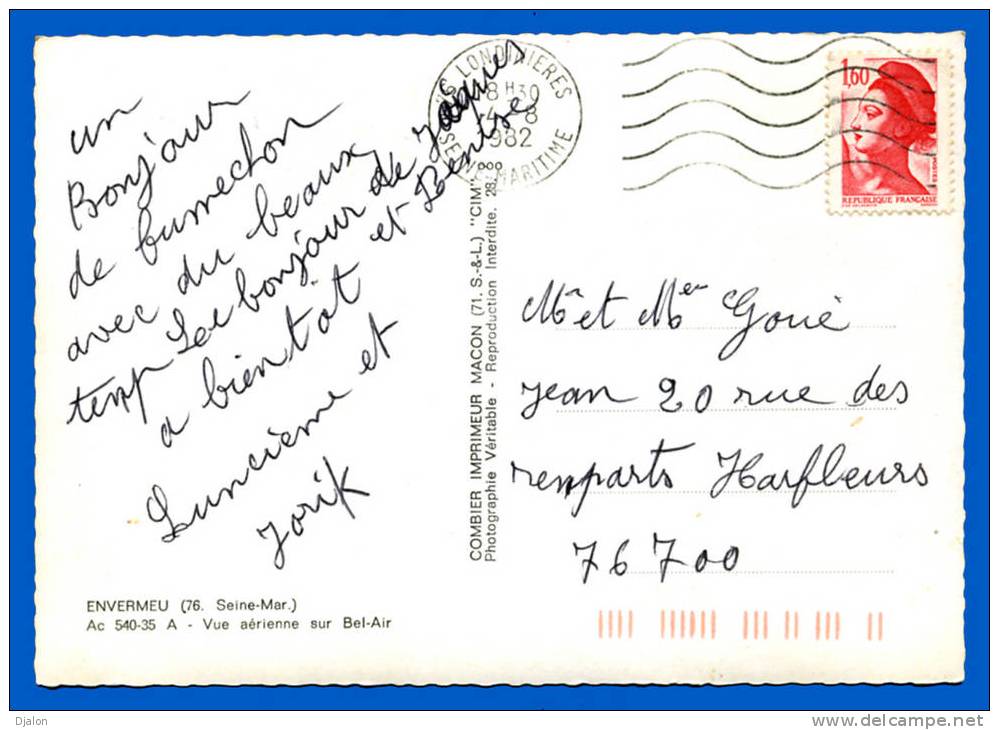 un
Bonjour
de bumechon
avec du beaux
temp Le bonjour de Jaques
a bien tôt et
et
Yorik
ENVERMEU (76. Seine-Mar.)
Ac 540-35 A - Vue aérienne sur Bel-Air
COMBIER IMPRIMEUR MACON (71. S.-&-L.) "CIM"
Photographie Véritable - Reproduction Interdite. 28.
LONDINIERES
8H30
4 - 8
1982
SEINE MARITIME
1,60
POSTES
REPUBLIQUE FRANÇAISE
Mr et Me Goué
Jean 20 rue des
remparts Harfleurs
76700
Djalon
www.delcampe.net